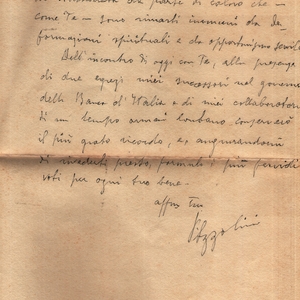 da parte di coloro che —
come Te — sono rimasti immuni da de-
formazioni spirituali e da opportunismo servile
Dell'incontro di oggi con Te, alla presenza
di due egregi miei successori nel governo
della Banca d'Italia e di miei collaboratori
di un tempo ormai lontano, conserverò
il più grato ricordo, ed augurandomi
di rivederti presto, formulo i più fervidi
voti per ogni tuo bene.
affmo Tuo